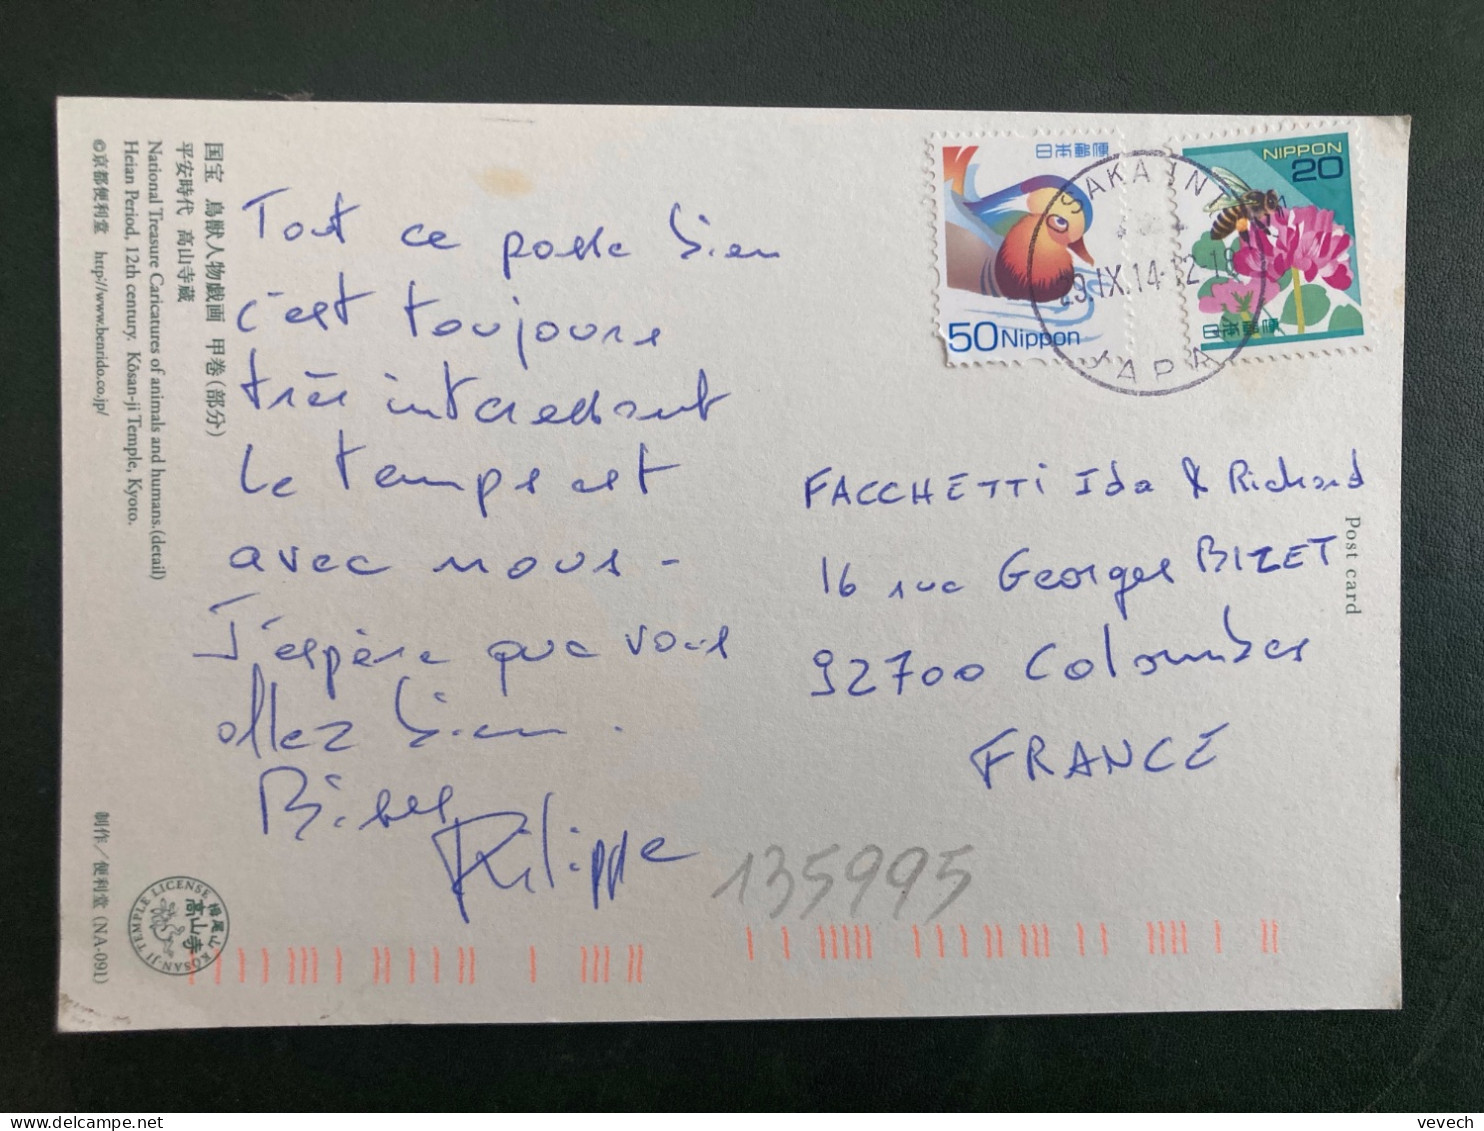 国宝 鳥獣人物戯画 甲巻(部分)
平安時代 高山寺蔵
National Treasure Caricatures of animals and humans.(detail)
Heian Period, 12th century. Kōsan-ji Temple, Kyoto.
©京都便利堂 http://www.benrido.co.jp/
制作/便利堂 (NA-091)
KŌSAN-JI TEMPLE LICENSE
栂尾山
高山寺
Tout ce passe bien
c'est toujours
très intéressant
Le temps est
avec nous -
J'espère que vous
allez bien.
Bises
Philippe
日本郵便
50 Nippon
NIPPON
20
日本郵便
SAKA INT
29.IX.14
JAPA
Post card
FACCHETTI Ida & Richard
16 rue Georges BIZET
92700 Colombes
FRANCE
135995
vevech